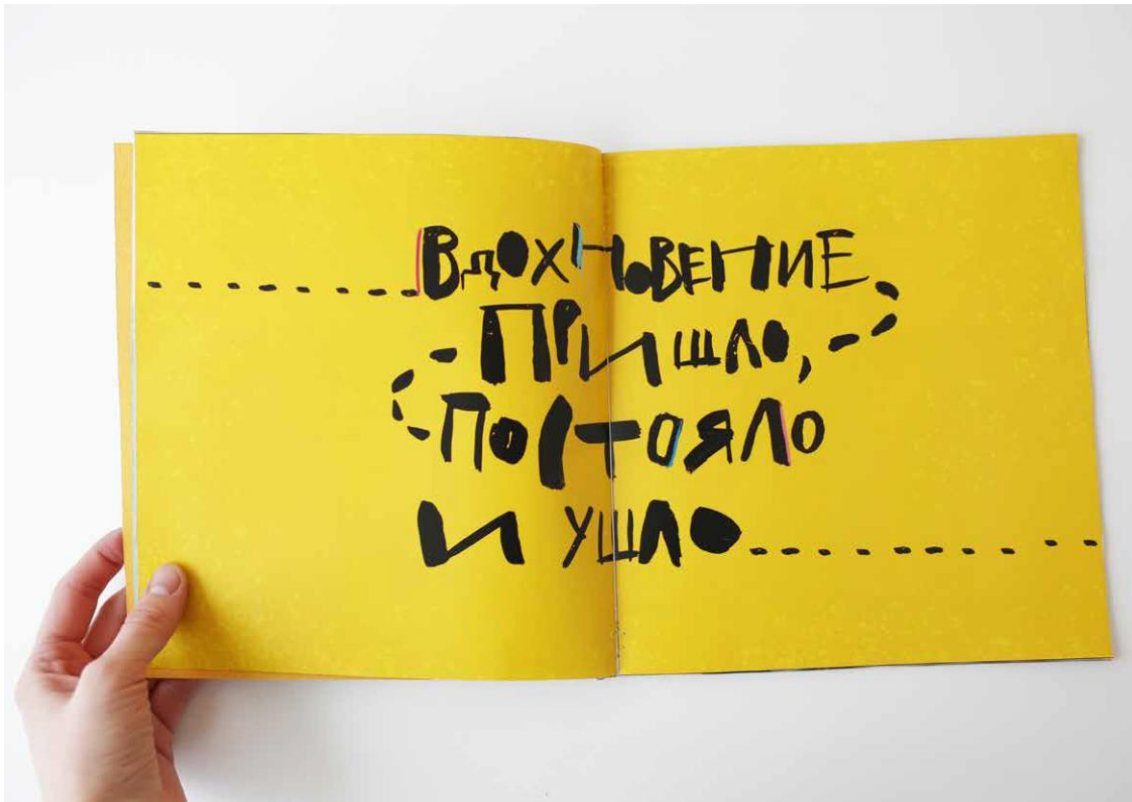 ВДОХНОВЕНИЕ
ПРИШЛО,
ПОСТОЯЛО
И УШЛО